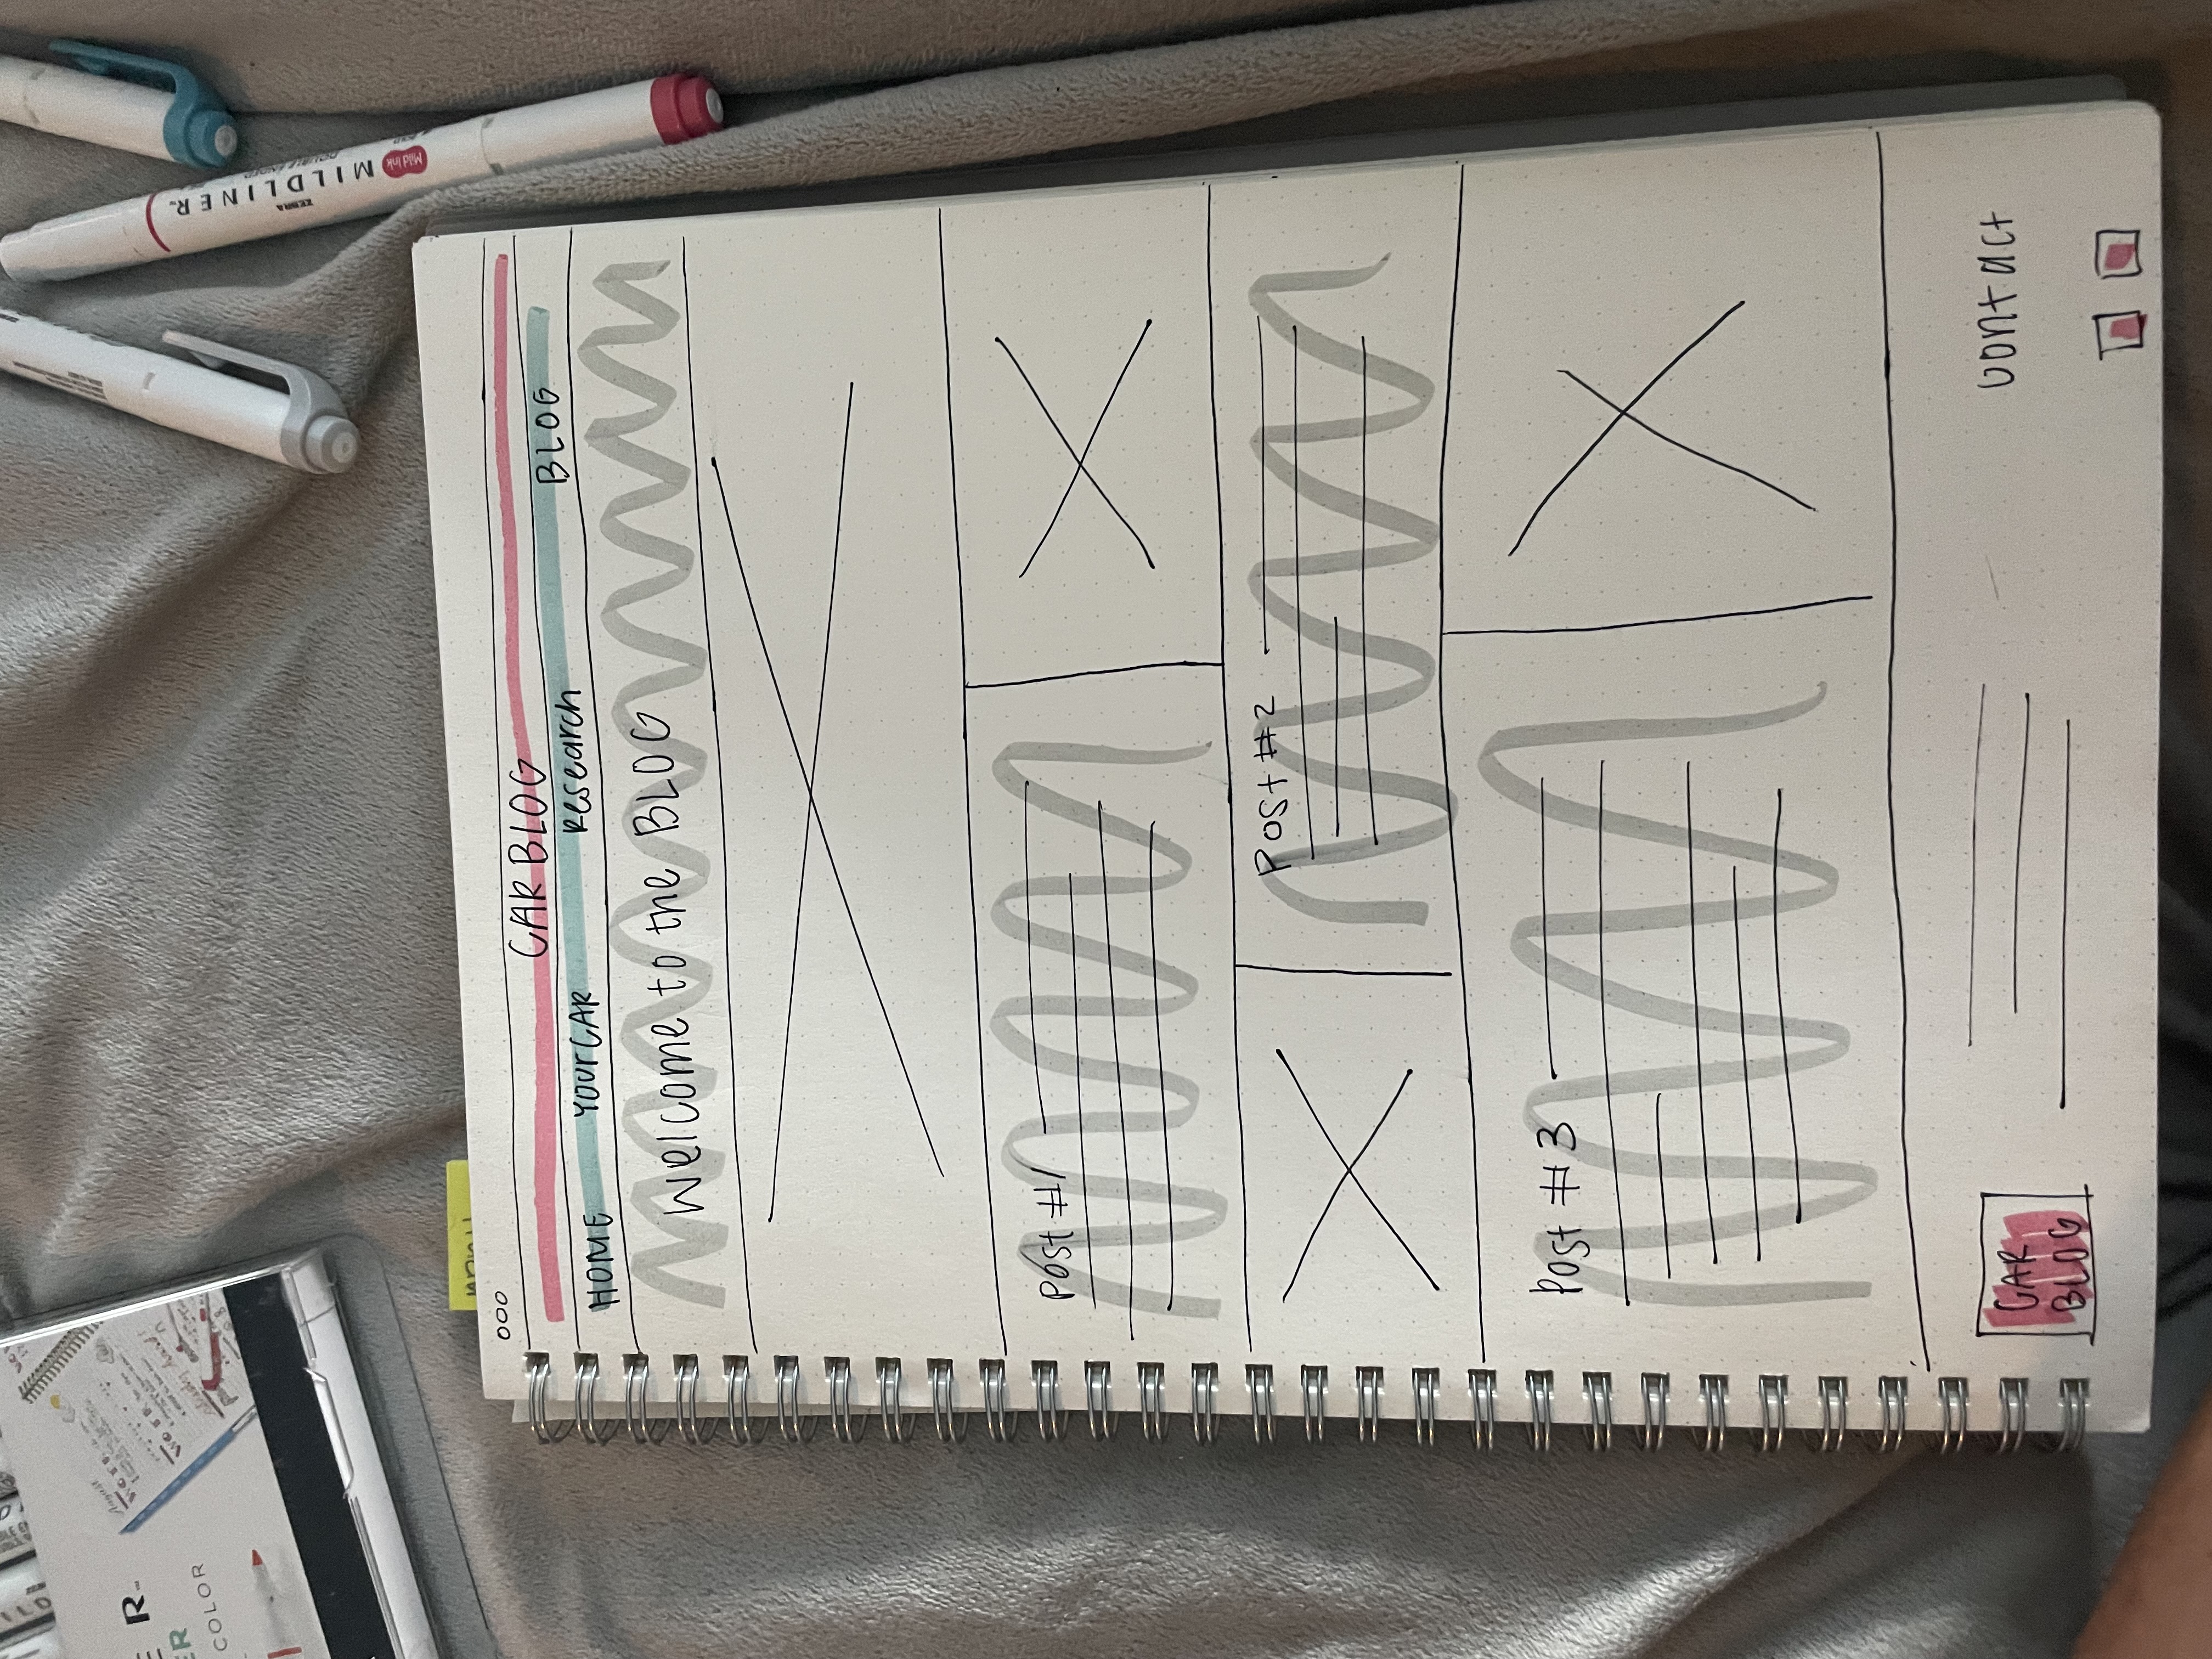 R
ER
COLOR
ZEBRA
MILDLINER
Mild Ink
ooo
CAR BLOG
HOME YOUR CAR Research BLOG
Welcome to the BLOG
Post #1
Post #2
Post #3
CAR
BLOG
contact